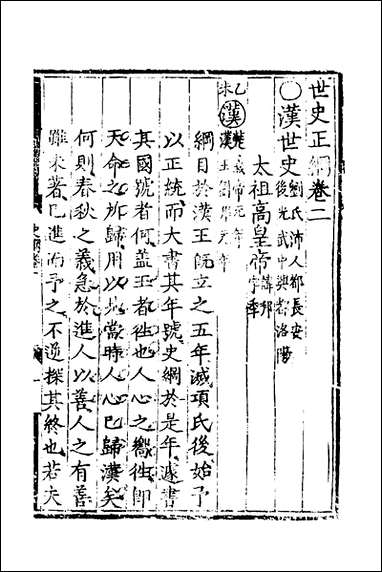 世史正綱卷二
○漢世史劉氏沛人都長安後光武中興都洛陽
太祖高皇帝諱邦字季
乙未漢楚義帝元年漢王劉邦元年
綱目於漢王既立之五年滅項氏後始予
以正統而大書其年號史綱於是年遽書
其國號者何蓋王者徃也人心之嚮徃即
天命之所歸用以見當時人心已歸漢矣
何則春秋之義急於進人以善人之有善
雖未著已進而予之不逆探其終也若夫